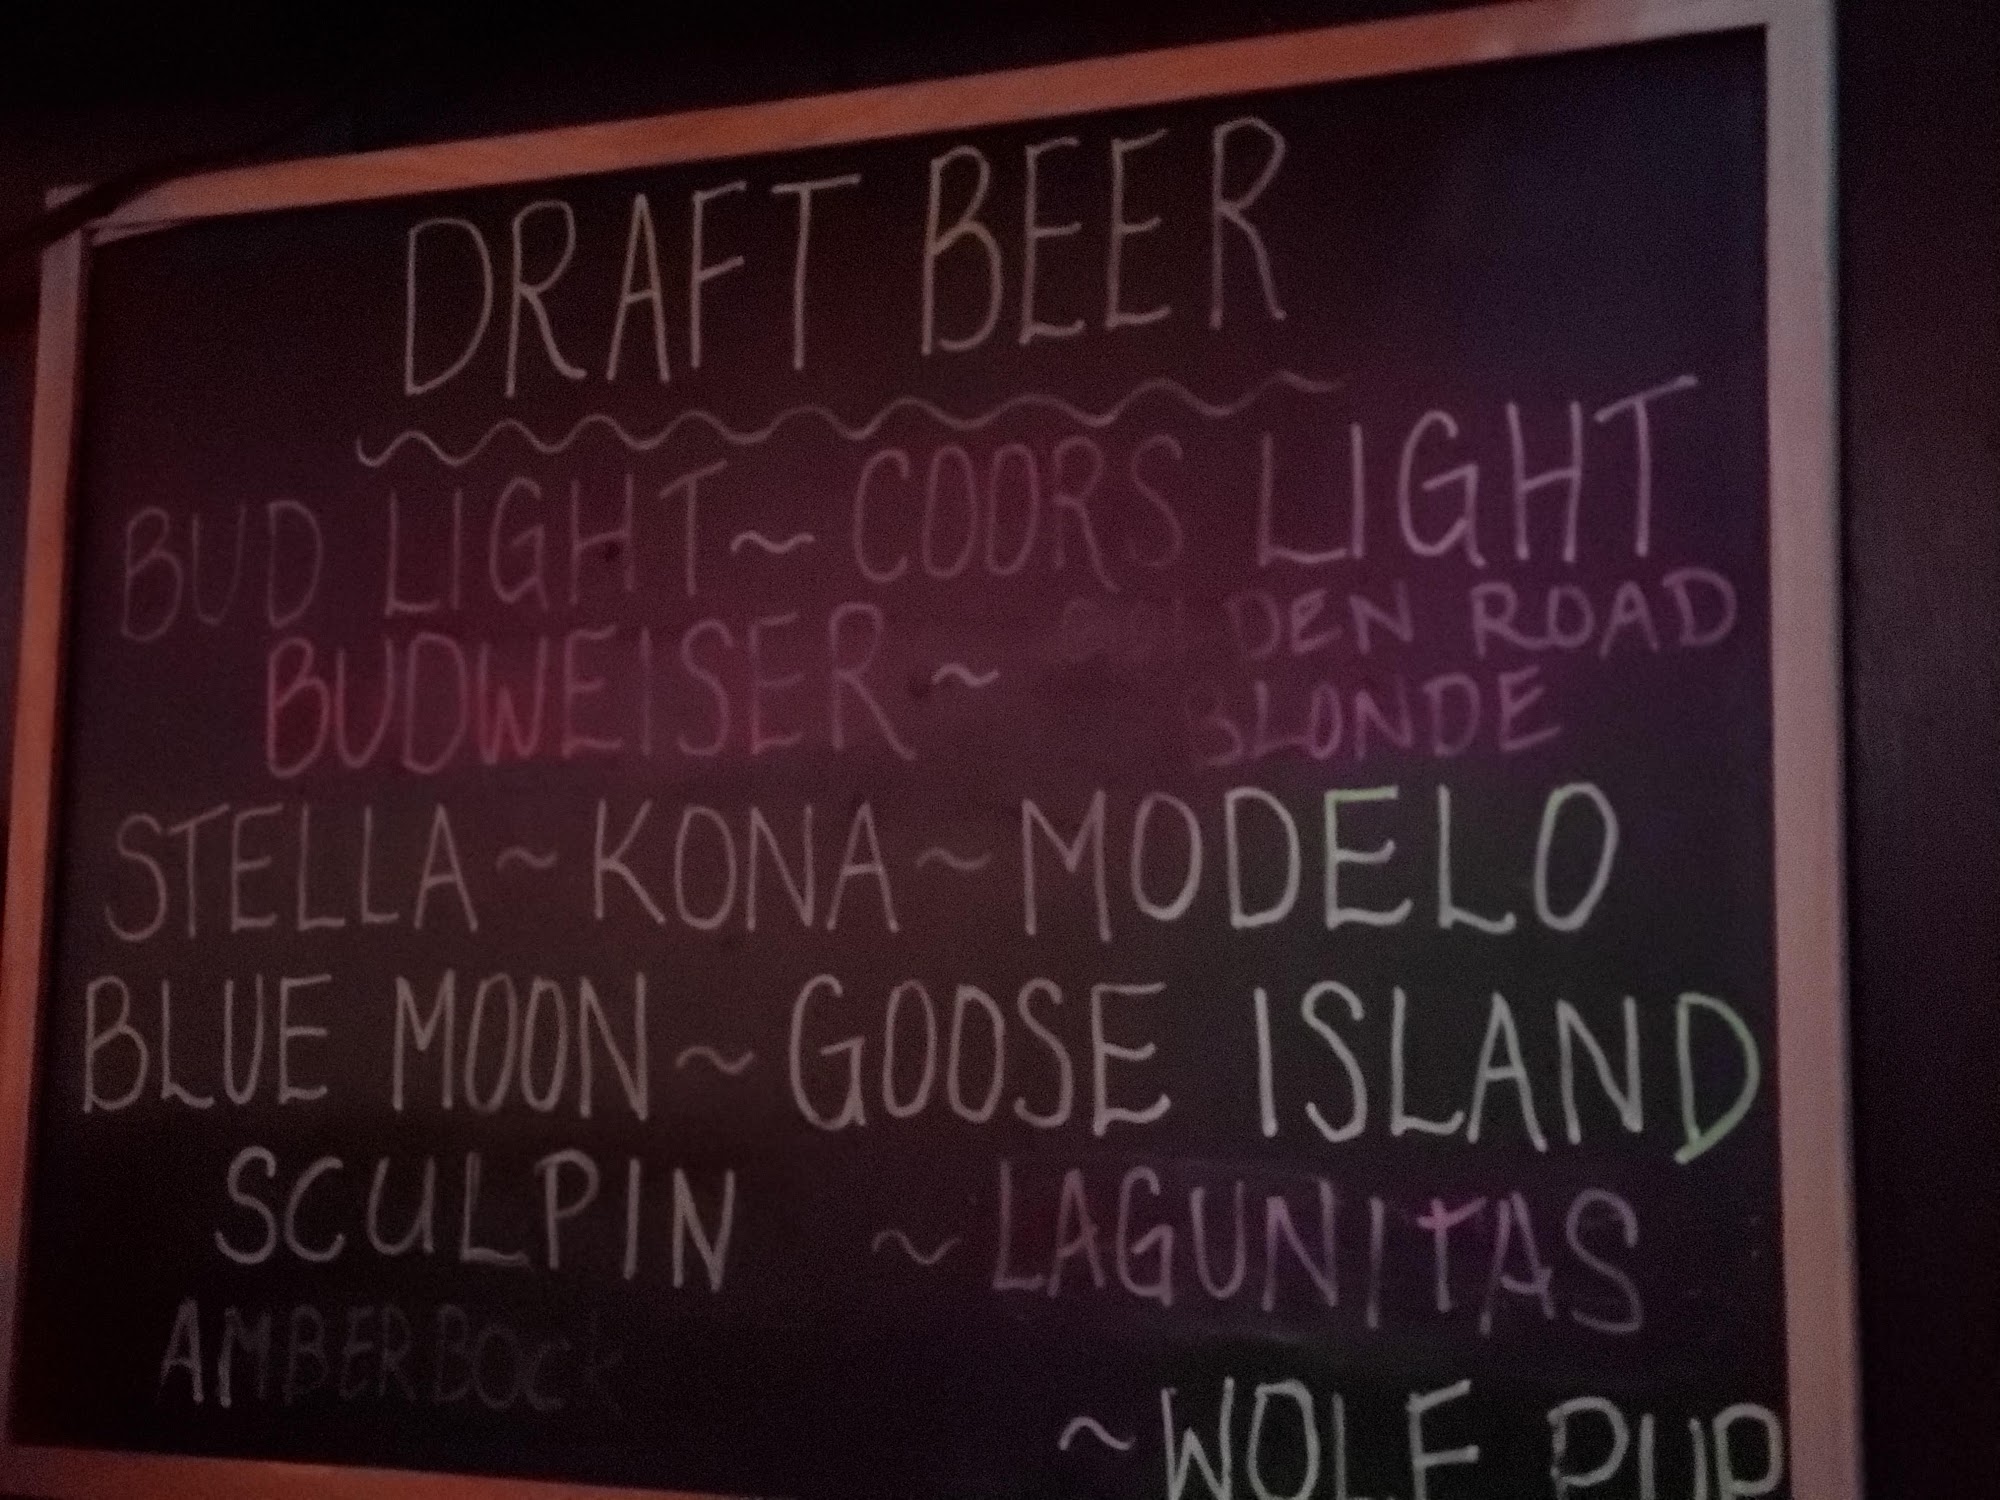 DRAFT BEER
BUD LIGHT ~ COORS LIGHT
BUDWEISER ~ GOLDEN ROAD
BLONDE
STELLA ~ KONA ~ MODELO
BLUE MOON ~ GOOSE ISLAND
SCULPIN ~ LAGUNITAS
AMBERBOCK
~ WOLF PUP